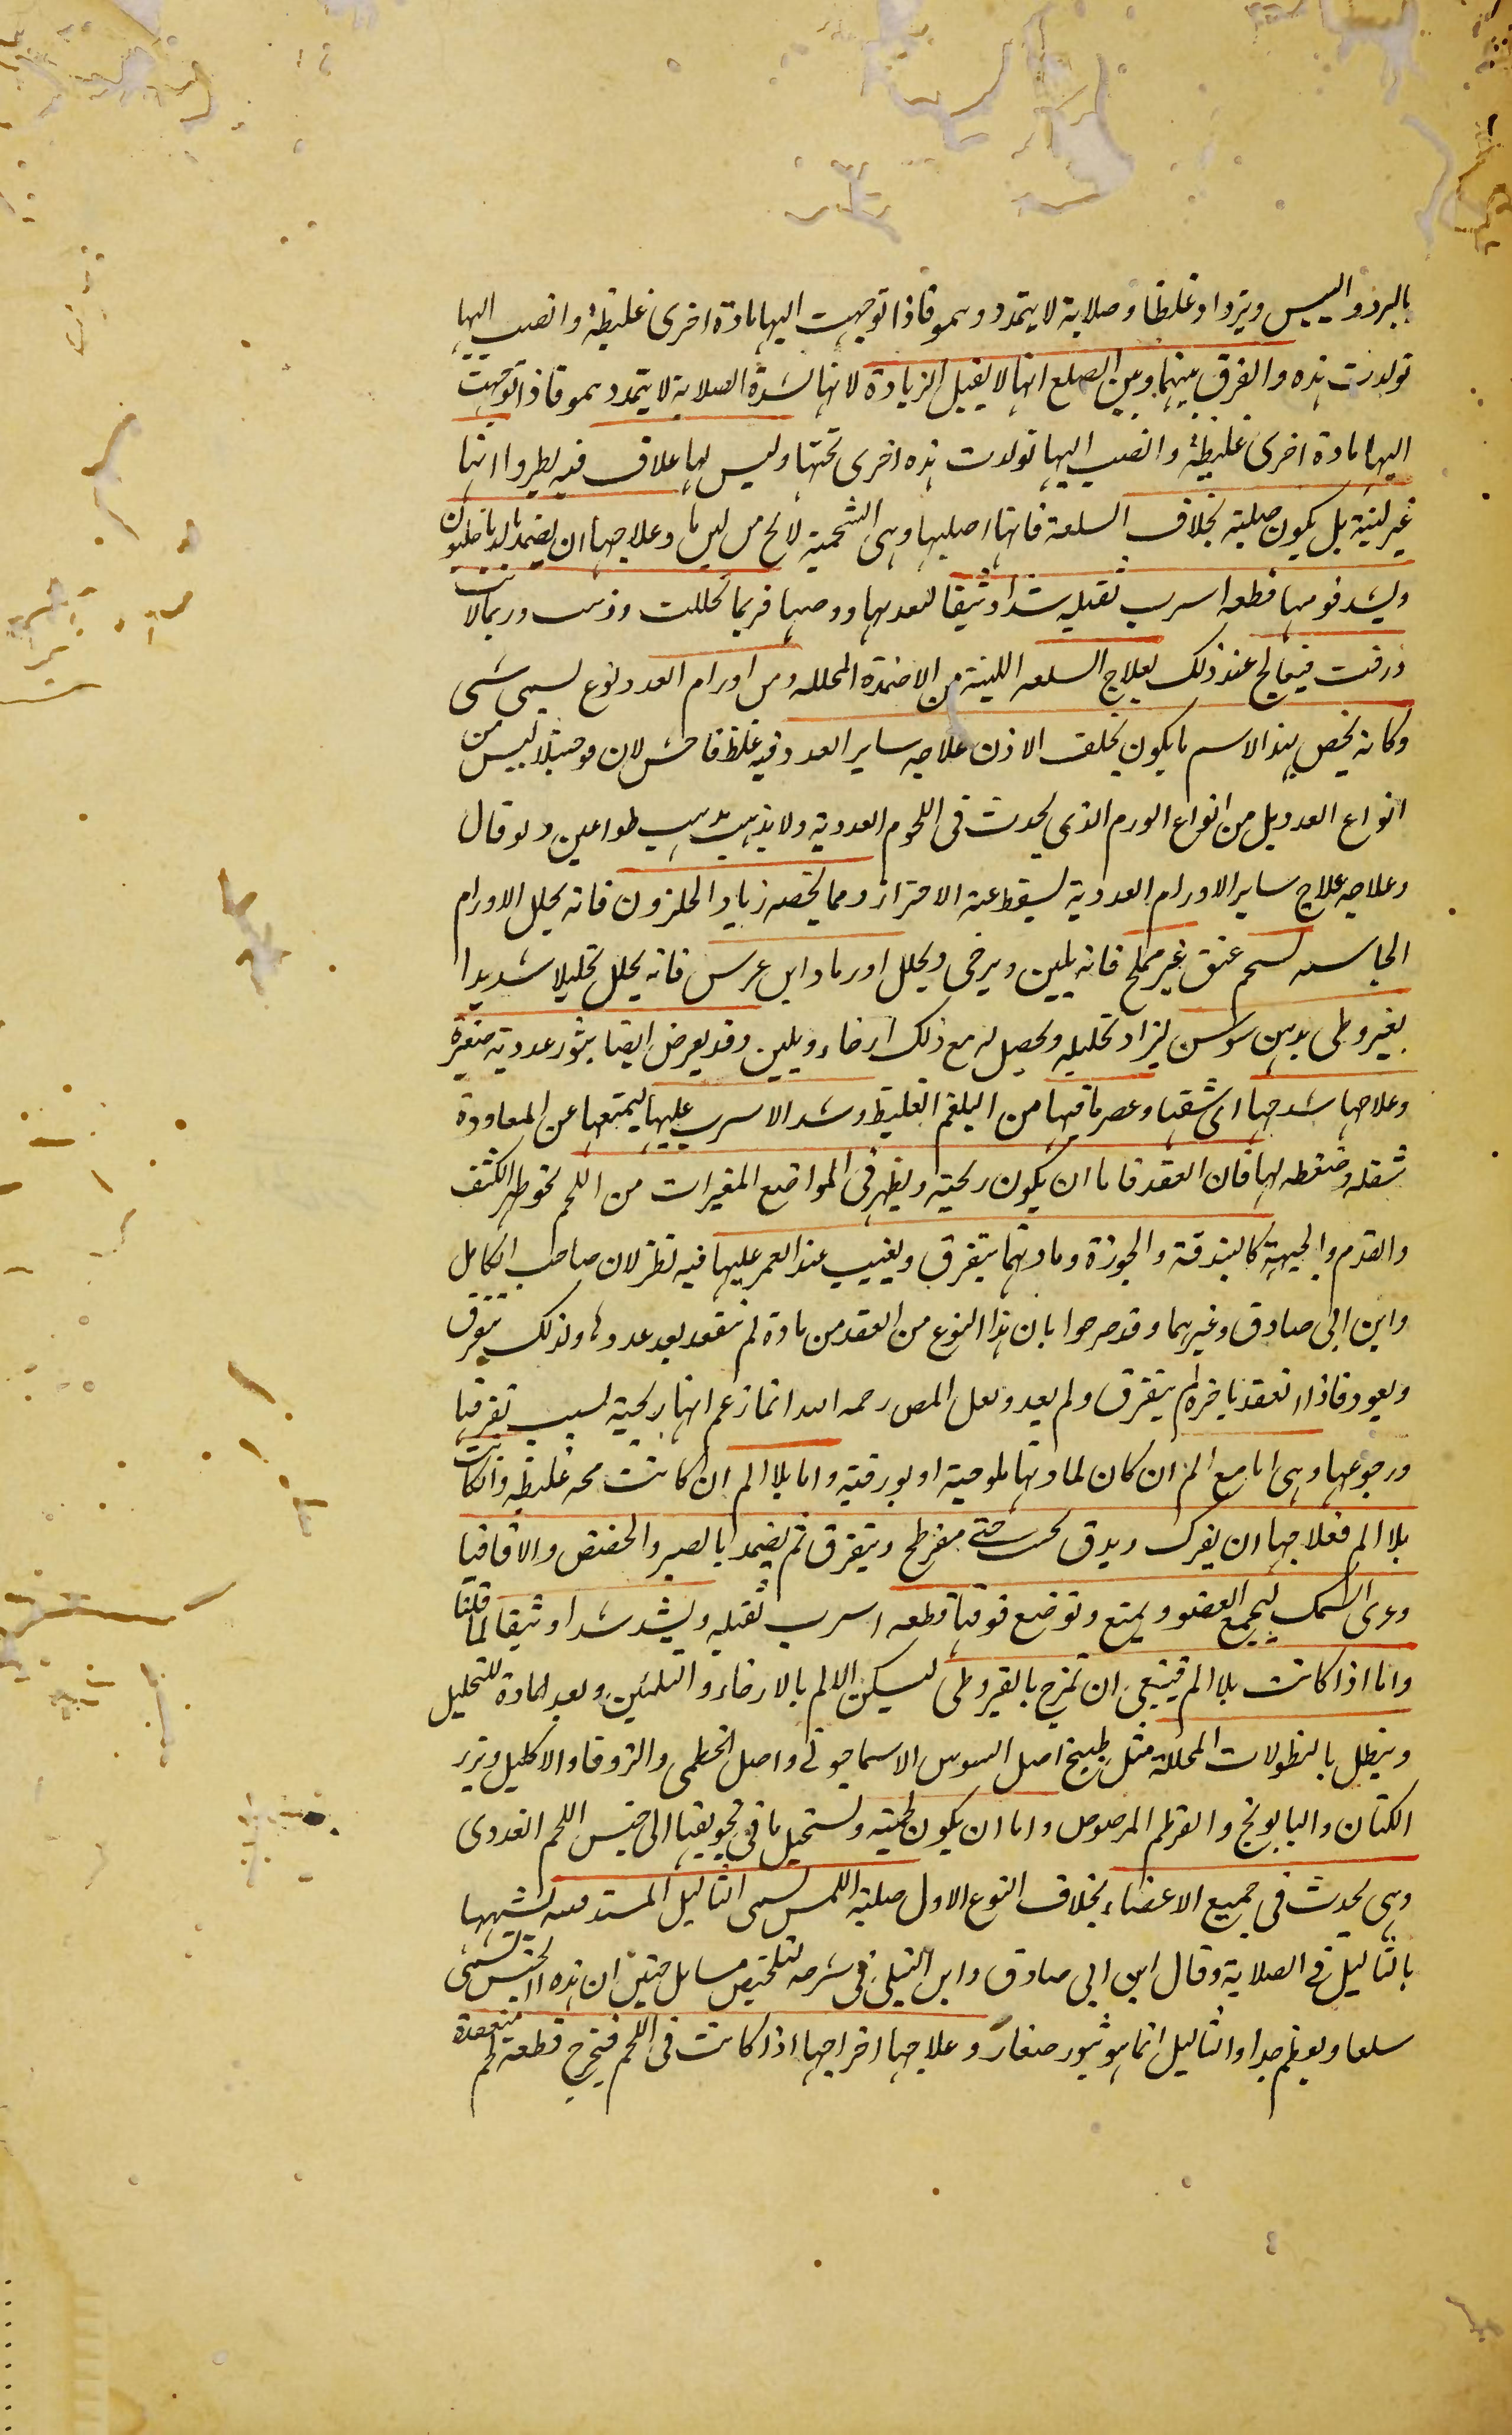 بالبرد واليبس ويزداد غلظا وصلابة لا يتمدد وينمو فاذا توجهت اليها مادة اخرى غليظة وانصب اليها
تولدت هذه والفرق بينهما وبين السلع انها لا يقبل الزيادة لانها لشدة الصلابة لا يتمدد ينمو فاذا توجهت
اليها مادة اخرى غليظة وانصب اليها تولدت هذه اخرى تحتها وليس لها غلاف فيه يطير وانها
غير لينة بل يكون صلبة بخلاف السلعة فانها اصلبها وهى الشحمية لا يخ من لين ما وعلاجها ان يضمد بالدياخليون
ويشد فوقها قطعه اسرب ثقيله شدا وثيقا لتعدمها ورضها فربما تحللت وذهبت وربما لانت
ورقت فيعالج عند ذلك بعلاج السلعه اللينة من الاضمدة المحلله ومن اورام الغدد نوع يسمى
وكانه يخص بهذا الاسم ما يكون يخلف الاذن علاجه ساير الغدد فيه غلظ فاحش لان فوجثلا ليس من
انواع الغدد بل من انواع الورم الذى يحدث فى اللحوم الغددية ولا يذهب مذهب طواعين ولو قال
وعلاجه علاج ساير الاورام الغددية ليسقط عنه الاحتراز ومما يخصه رماد الحلزون فانه يحلل الاورام
الجاسيه بشحم عتق غير مملح فانه يلين ويرخى ويحلل او رماد ابن عرس فانه يحلل تحليلا شديدا
بقيروطى بدهن سوسن ليزاد تحليله ويحصل له مع ذلك ارخاء ويلين وقد يعرض ايضا بثور غددية صغيرة
وعلاجها شدخها اى شقها وعصر ما فيها من البلغم الغليظ وشد الاسرب عليها ليمنعها عن المعاودة
بثقله وضغطه لها فان العقد فاما ان يكون ريحية ويظهر فى المواضع المعيرات من اللحم نحو ظهر الكتف
والقدم والجبهة كالبندقة والجوزة ومادتهما يتفرق ويغيب عند الغمر عليها فيه نظر لان صاحب الكامل
وابن ابى صادق وغيرهما وقد صرحوا بان هذا النوع من العقد من مادة لم تنعقد بعد غددا ولذلك يتفرق
ويعود فاذا انعقد باخره لم يتفرق ولم يعد ولعل المص رحمه الله انما زعم انها ريحية لسبب تفرقها
ورجوعها وهى اما مع الم ان كان لمادتها ملوحية او بورقية واما بلا الم ان كانت محه غليظه وان كانت
بلا الم فعلاجها ان يفرك ويدق بخشب حتى مفرطح ويتفرق ثم يضمد بالصبر والحضض والاقاقيا
وغرى السمك ليجمع العضو ويمنع وتوضع فوقها قطعه اسرب ثقيله ويشد شدا وثيقا لما قلنا
واما اذا كانت بلا الم فينبغى ان تمزج بالقيروطى ليسكن الالم بالارخاء والتليين ويعد المادة للتحليل
وينطل بالنطولات المحللة مثل طبيخ اصل السوس الاسمانجونى واصل الخطمى والزوفا والاكليل وبزر
الكتان والبابونج والقرطم المرضوض واما ان يكون لحمية ويستحيل ما فى تجويفها الى جنس اللحم الغددى
وهى يحدث فى جميع الاعضاء بخلاف النوع الاول صلبة اللمس يسمى الثاليل المستدفعه لشبهها
بالثاليل فى الصلابة وقال ابن ابى صادق وابن التيلى فى شرحه لتلخيص مسايل حنين ان هذه الجنس يسمى
سلعا ويعظم جدا والثاليل انما هو بثور صغار وعلاجها اخراجها اذا كانت فى اللحم فيخرج قطعه لحم منعقدة